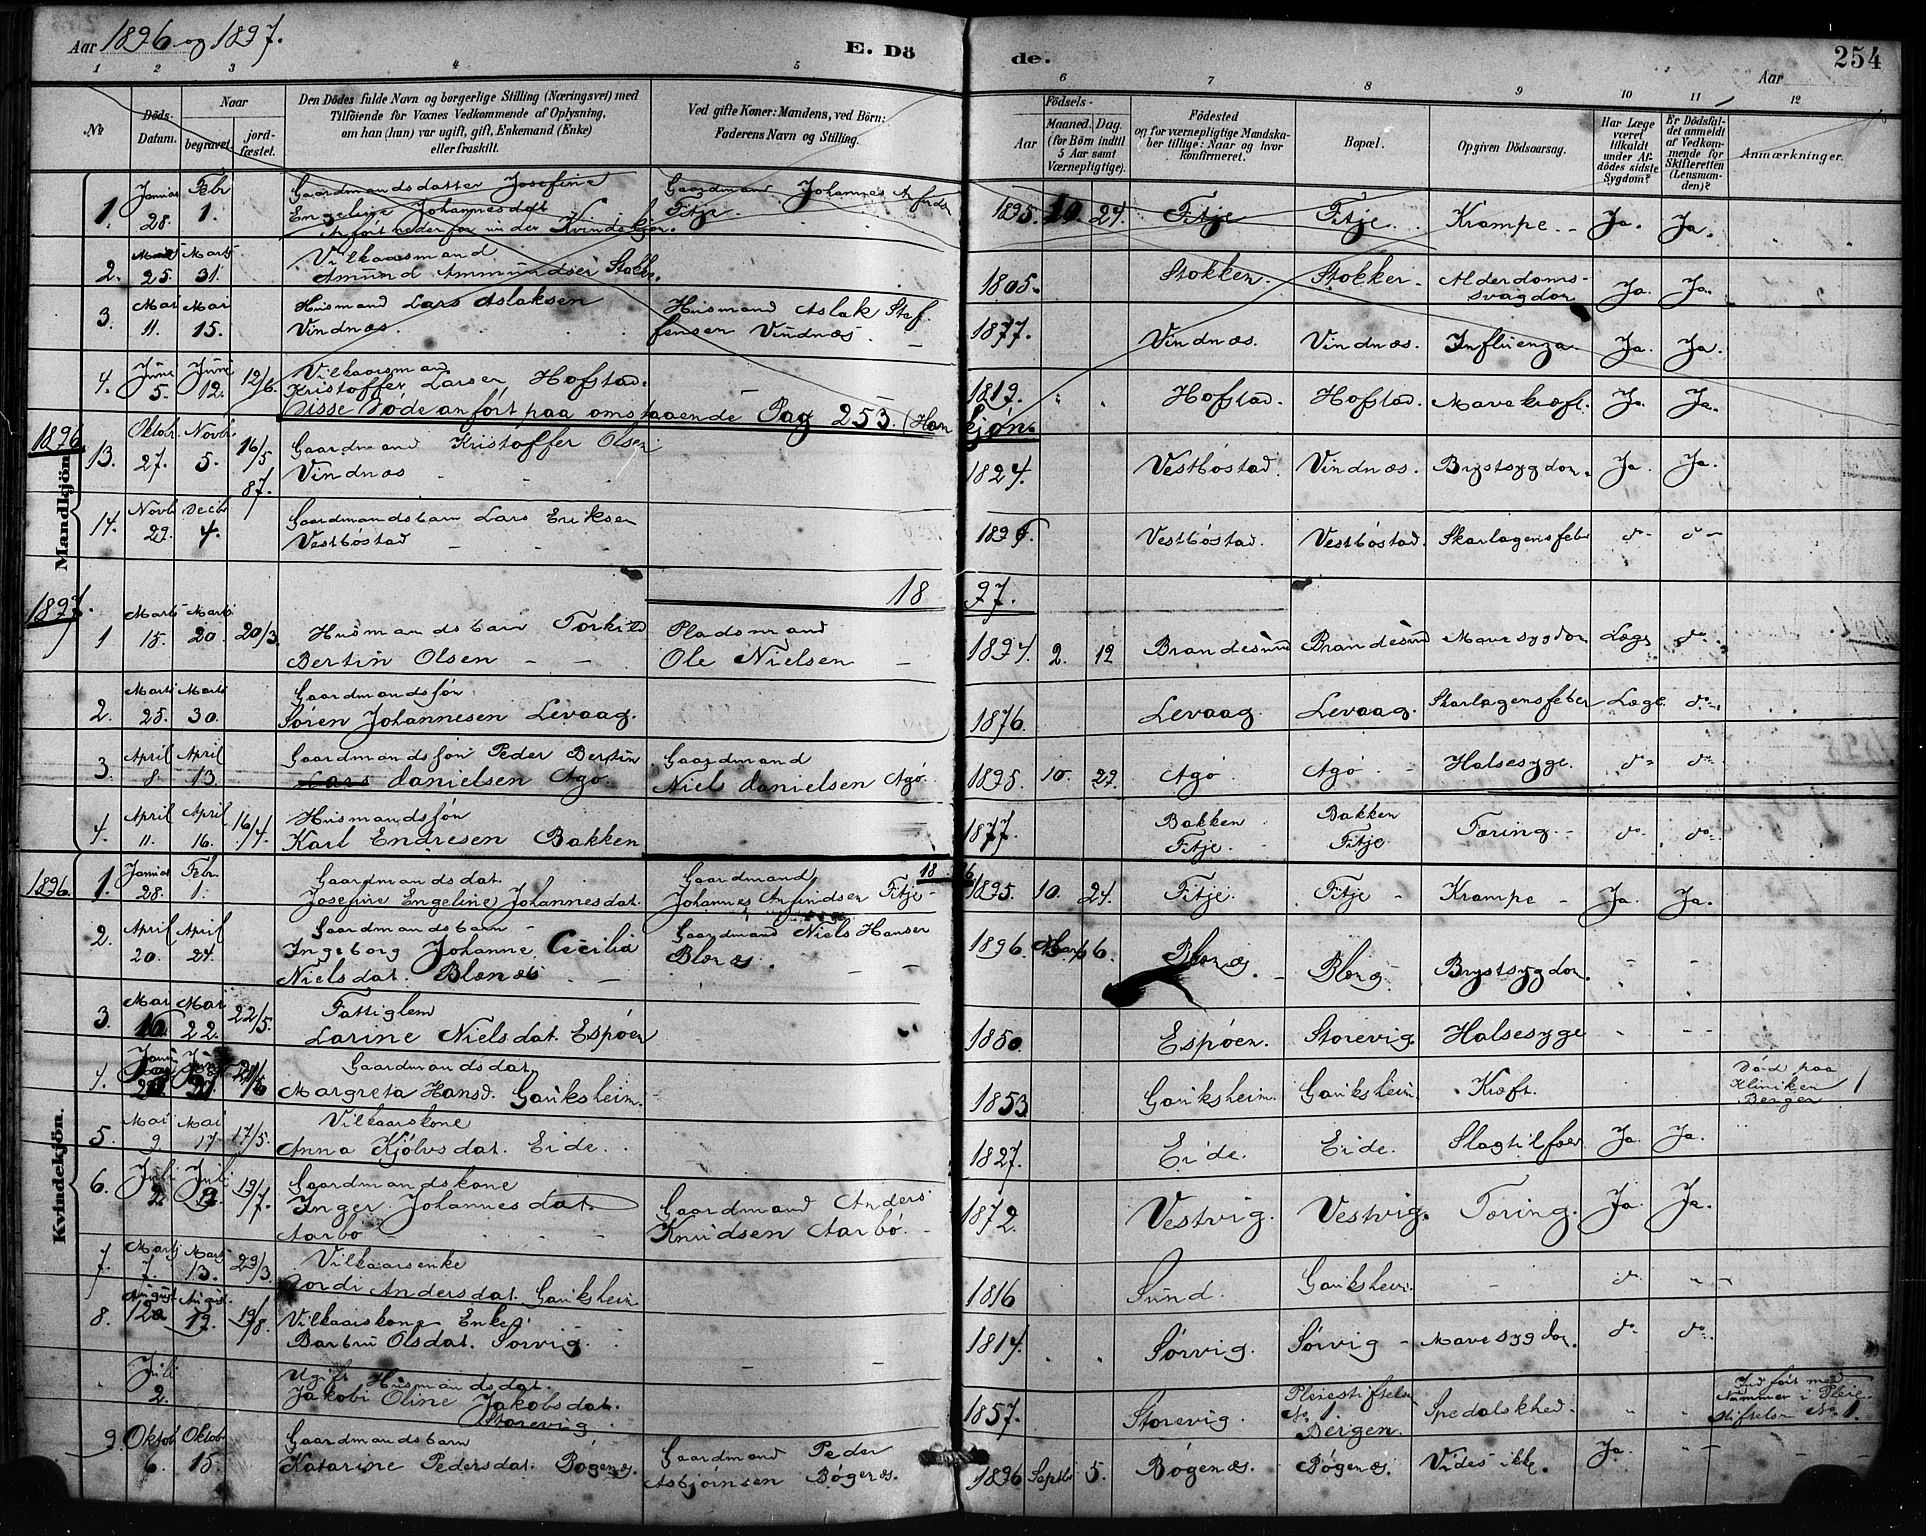 Aar 1896 og 1897. E. Dö de. 254
Aar
1 2 3 4 5 6 7 8 9 10 11 12
No
Döds-Datum.
Naar
begravet.
jord-fæstet.
Den Dödes fulde Navn og borgerlige Stilling (Næringsvei) med
Tilföiende for Voxnes Vedkommende af Oplysning,
om han (hun) var ugift, gift, Enkemand (Enke)
eller fraskilt.
Ved gifte Koner: Mandens, ved Börn:
Faderens Navn og Stilling.
Födsels-
Aar
Maaned. Dag.
(for Börn indtil
5 Aar samt
Værnepligtige).
Födested
og for værnepligtige Mandska-
ber tillige: Naar og hvor
konfirmeret.
Bopæl.
Opgiven Dödsaarsag.
Har Læge
været
tilkaldt
under Af-
dödes sidste
Sygdom?
Er Dödsfal-
det anmeldt
af Vedkom-
mende for
Skifteretten
(Lensman-
den)?
Anmærkninger.
1. Januar 28. Febr 1. Gaardmandsdatter Josefine Gaardmand Johannes Arfinds 1895. 10. 24. Fitje Fitje Krampe Ja. Ja.
Engeline Johannesdat Fitje
Anfört nedenfor under Kvindekjön.
2. 25. Marts 31. Vilkaarsmand 1805. Stokken. Stokken. Alderdoms-svagdom Ja. Ja.
Amund Ammundsen Stokk.
3. Mai 11. Mai 15. Husmand Lars Aslaksen Husmand Aslak Stef 1877. Vindnæs. Vindnæs. Influenza. Ja. Ja.
Vindnæs. fensen Vindnæs.
4. Juni 5. Juni 12. 12/6. Vilkaarsmand 1819. Hofstad. Hofstad. Mavekræft. Ja. Ja.
Kristoffer Larsen Hofstad.
Disse Döde anfört paa omstaaende Pag 253. (Han kjøn.
1896
Mandkjön.
13. Oktobr 27. Novbr 5. 16/5 87. Gaardmand Kristoffer Olsen 1824. Vestbóstad. Vindnæs. Brystsygdom. Ja. Ja.
Vindnæs
14. Novbr 29. Decbr 4. Gaardmandsbarn Lars Eriksen Vestbóstad. Vestbóstad. Skarlagensfeber do do
Vestbóstad
1897. 18 97.
1 Marts 15. Marts 20. 20/3 Husmandsbarn Torkild Pladsmand 1894. 2. 12 Brandesund Brandesund Mavesygdom Læge do
Bertin Olsen Ole Nielsen
2. Marts 25. Marts 30. Gaardmandssøn 1876. Levaag. Levaag. Skarlagensfeber Læge do
Søren Johannesen Levaag.
3. April 8. April 13. Gaardmandssøn Peder Bertin Gaardmand 1895 10. 29. Agó Agó Halsesyge do do
Danielsen Agó Niels Danielsen Agó
4. April 11. April 16. 16/4. Husmandssøn 1877. Bakken Fitje Bakken Fitje Tæring. do do
Karl Endresen Bakken
1896. 18 6
Kvindekjön.
1. Januar 28. Febr. 1. Gaardmandsdat Gaardmand 1895. 10. 24. Fitje. Fitje Krampe Ja. Ja.
Josefine Engeline Johannesdat. Johannes Arfindsen Fitje
2. April 20. April 24. Gaardmandsbarn Gaardmand Niels Hansen 1896 Marts 6. Blænæs Brystsygdom
Ingeborg Johanne Cecilia Blænæs.
Nielsdat. Blænæs
3. Mai 16. Mai 22. 22/5. Fattiglem 1850. Espóen. Storevig. Halsesyge
Larine Nielsdat. Espóen
4. Gaardmandsdat. 1853 Gauksheim. Gauksheim. Kræft. Död paa
Margreta Hansd. Gauksheim. Kliniken
Bergen
5. Mai 9. Mai 17 17/5. Vilkaarskone 1827. Eide. Eide. Slagtilfær Ja. Ja.
Anna Kjölvsdat. Eide.
6. Juli 2. Juli 19/7. Gaardmandskone Gaardmand Anders 1872. Vestvig. Vestvig. Tæring. Ja. Ja.
Inger Johannesdat Knudsen Aarbó.
Aarbó
7. Marts 7. Marts 13. 29/3. Vilkaarsenke 1816 Sund. Gauksheim do
Andersdat. Gauksheim
8. August 12 August. 19. 19/8. Vilkaarskone Enke 1814. Sórvig. Sórvig Mavesygdom. do do
Barbru Olsdat. Sórvig.
Juli 2. Ugift Husmandsdat. 1857. Storevig. Pleiestiftelsen No 1 Bergen. Spedalskhed. Indfört med
Jakobi Oline Jakobsdat. Nummer i Pleie-
Storevig stiftelsen No 1.
9. Oktob 6. Oktob 15. Gaardmandsbarn Gaardmand Peder 1896 Septbr 5. Bógenæs. Bógenæs. Vides ikke. Ja.
Katarine Pedersdat. Bógenæs. Asbjørnsen Bógenæs.